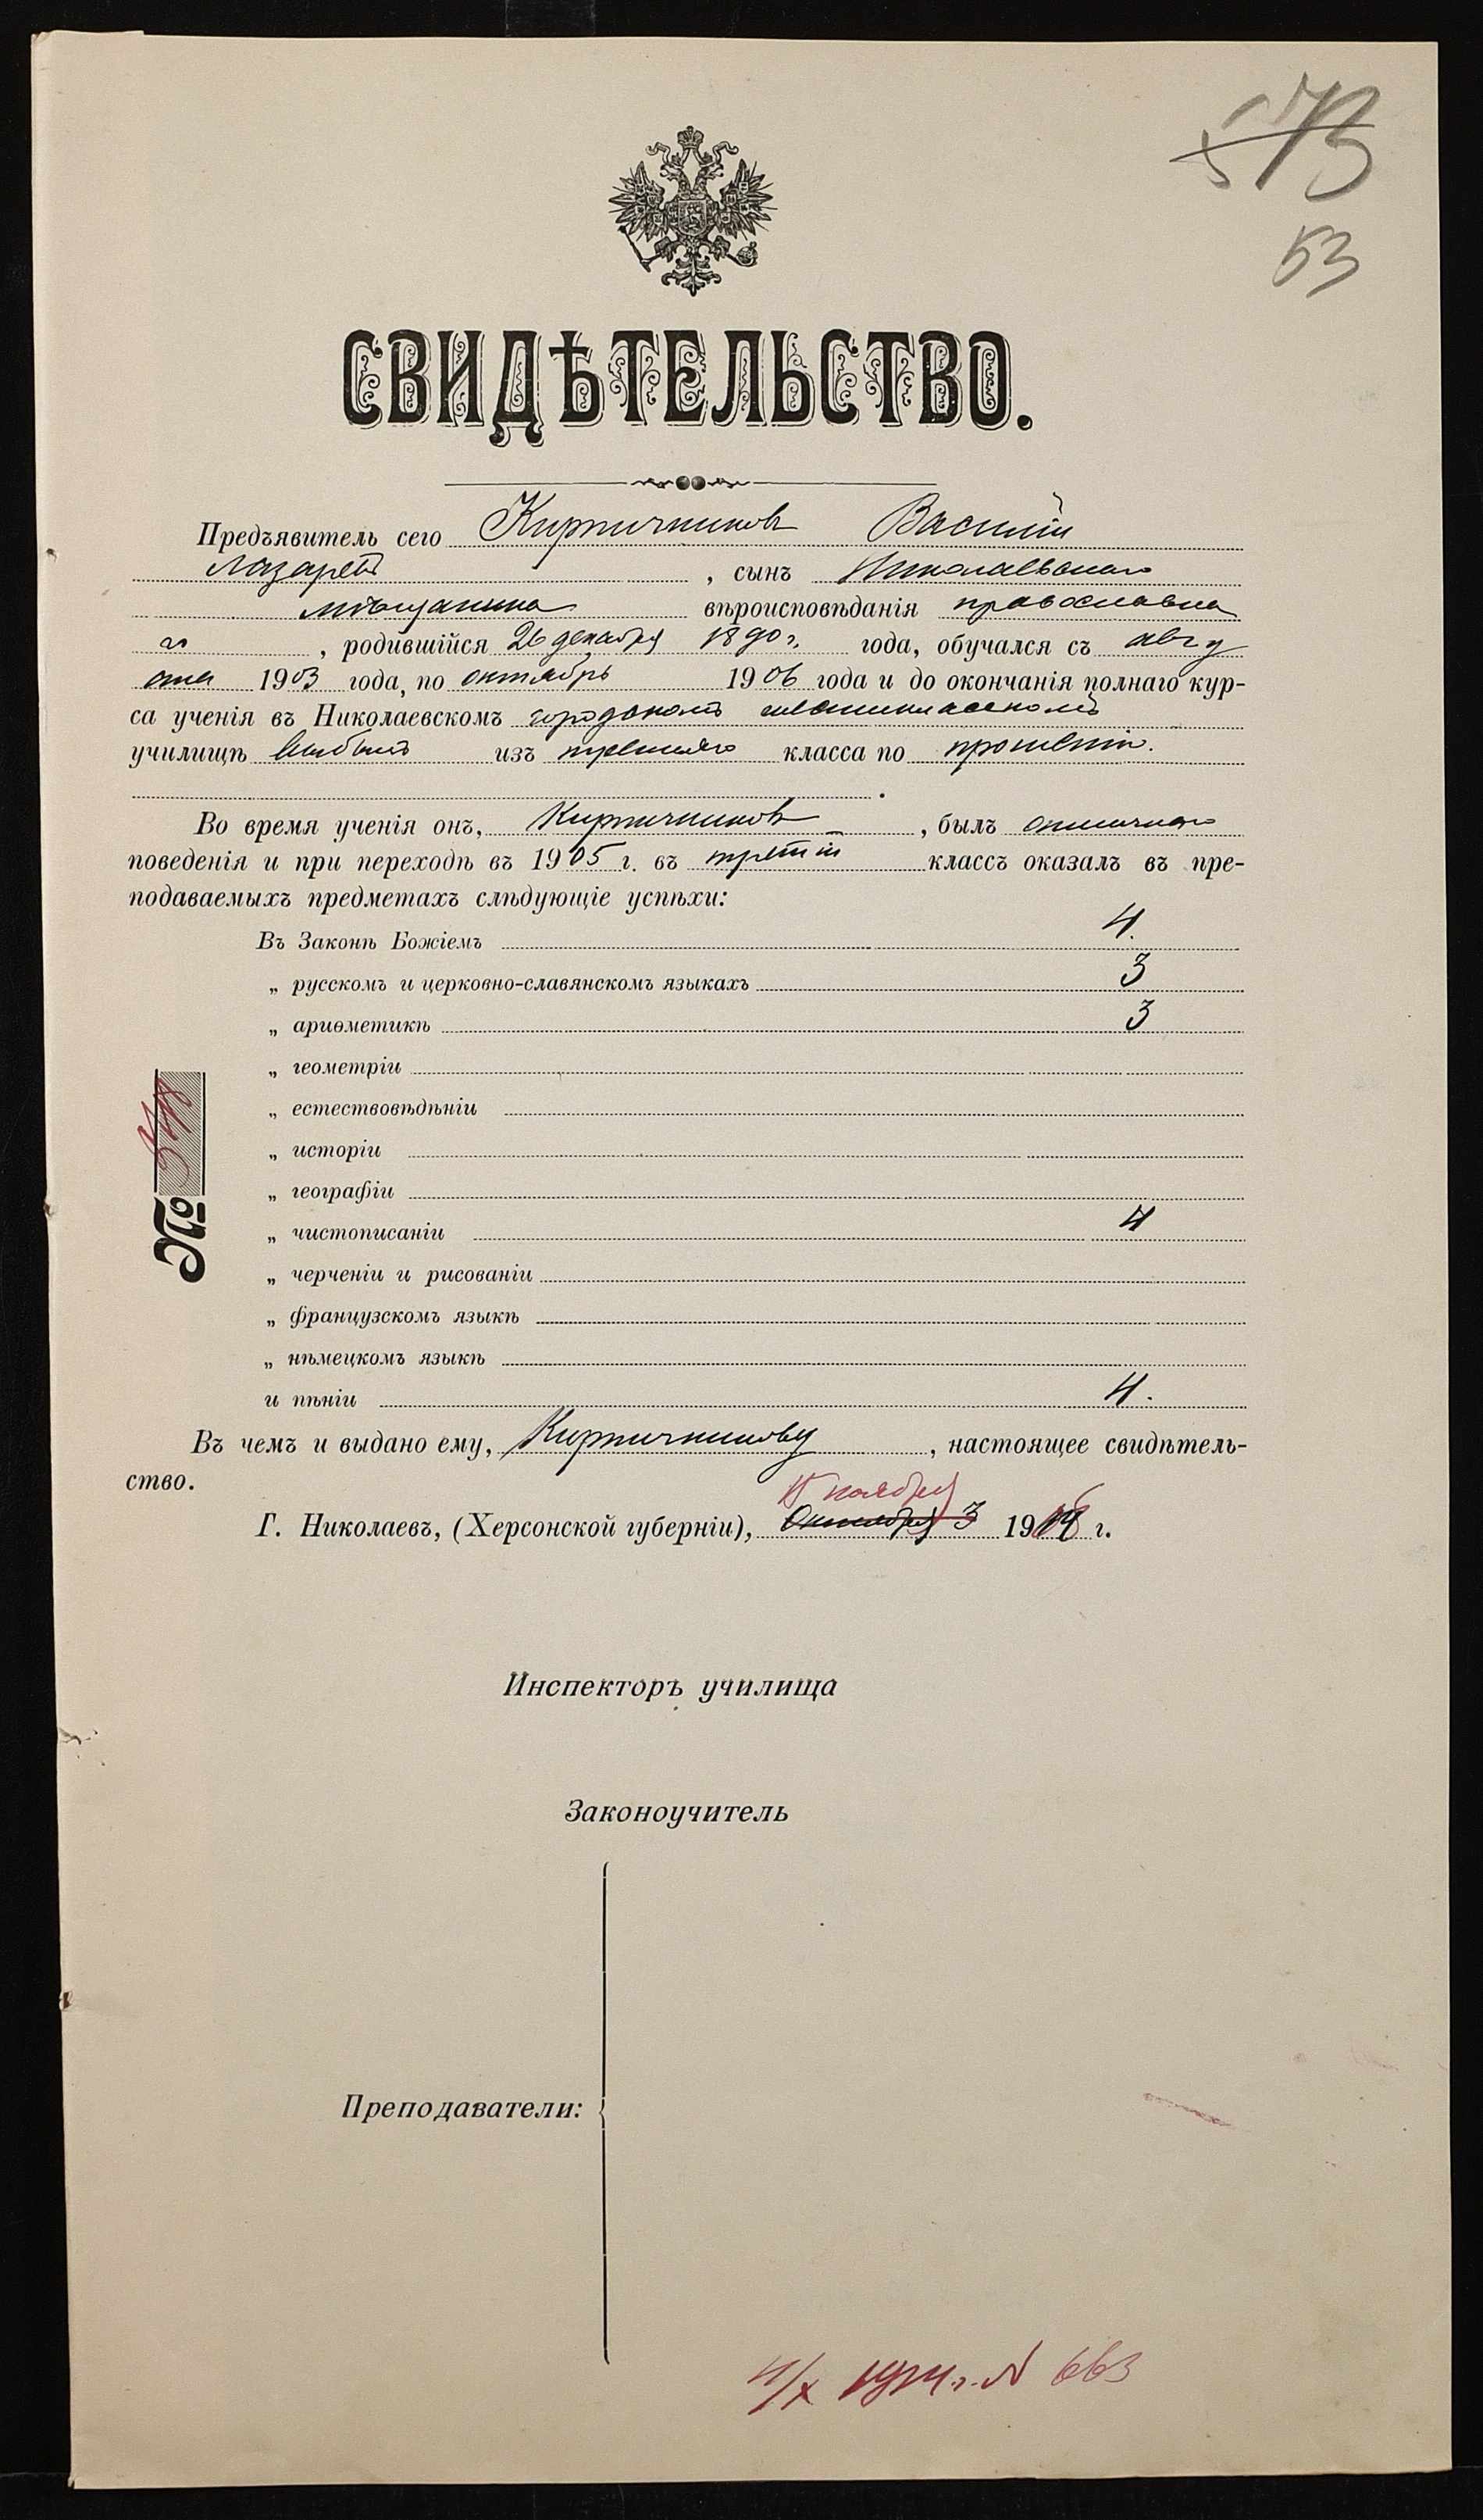 53
СВИДѢТЕЛЬСТВО.
Предъявитель сего Кирпичниковъ Василій
Лазаревъ, сынъ Николаевскаго
мѣщанина вѣроисповѣданія православна
го, родившійся 26 декабря 1890 г. года, обучался съ авгу
ста 1903 года, по октябрь 1906 года и до окончанія полнаго кур-
са ученія въ Николаевскомъ городскомъ шестиклассномъ
училищѣ выбылъ изъ третьяго класса по прошенію.
Во время ученія онъ, Кирпичниковъ, былъ отличнаго
поведенія и при переходѣ въ 1905 г. въ третій классъ оказалъ въ пре-
подаваемыхъ предметахъ слѣдующіе успѣхи:
Въ Законѣ Божіемъ 4.
„ русскомъ и церковно-славянскомъ языкахъ 3
„ ариѳметикѣ 3
„ геометріи
„ естествовѣдѣніи
„ исторіи
„ географіи
„ чистописаніи 4
„ черченіи и рисованіи
„ французскомъ языкѣ
„ нѣмецкомъ языкѣ
и пѣніи 4.
№
Въ чемъ и выдано ему, Кирпичникову, настоящее свидѣтель-
ство.
ноября
Г. Николаевъ, (Херсонской губерніи), Октября 3 19 г.
Инспекторъ училища
Законоучитель
Преподаватели:
4/X 1914 г. № 663